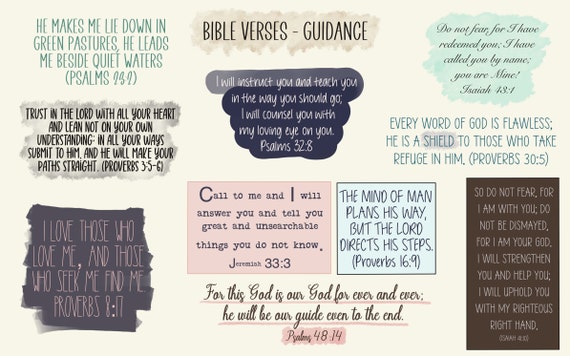 HE MAKES ME LIE DOWN IN
GREEN PASTURES, HE LEADS
ME BESIDE QUIET WATERS
(PSALMS
BIBLE VERSES - GUIDANCE
Do not fear, for I have
redeemed you; I have
called you by name;
you are Mine!
Isaiah 43:1
I will instruct you and teach you
in the way you should go;
I will counsel you with
my loving eye on you.
Psalms 32:8
TRUST IN THE LORD WITH ALL YOUR HEART
AND LEAN NOT ON YOUR OWN
UNDERSTANDING; IN ALL YOUR WAYS
SUBMIT TO HIM, AND HE WILL MAKE YOUR
PATHS STRAIGHT. (PROVERBS 3:5-6)
EVERY WORD OF GOD IS FLAWLESS;
HE IS A SHIELD TO THOSE WHO TAKE
REFUGE IN HIM. (PROVERBS 30:5)
I LOVE THOSE WHO
LOVE ME, AND THOSE
WHO SEEK ME FIND ME
PROVERBS 8:17
Call to me and I will
answer you and tell you
great and unsearchable
things you do not know.
Jeremiah 33:3
THE MIND OF MAN
PLANS HIS WAY,
BUT THE LORD
DIRECTS HIS STEPS.
(Proverbs 16:9)
SO DO NOT FEAR, FOR
I AM WITH YOU; DO
NOT BE DISMAYED,
FOR I AM YOUR GOD.
I WILL STRENGTHEN
YOU AND HELP YOU;
I WILL UPHOLD YOU
WITH MY RIGHTEOUS
RIGHT HAND.
(ISAIAH
For this God is our God for ever and ever;
he will be our guide even to the end.
Psalms 48:14